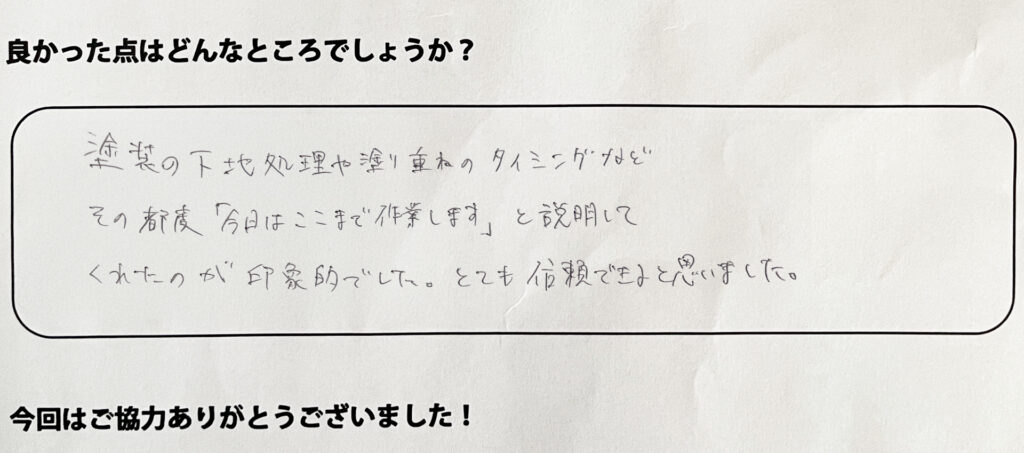 良かった点はどんなところでしょうか？
塗装の下地処理や塗り重ねのタイミングなど
その都度「今日はここまで作業します」と説明して
くれたのが印象的でした。とても信頼できると思いました。
今回はご協力ありがとうございました！